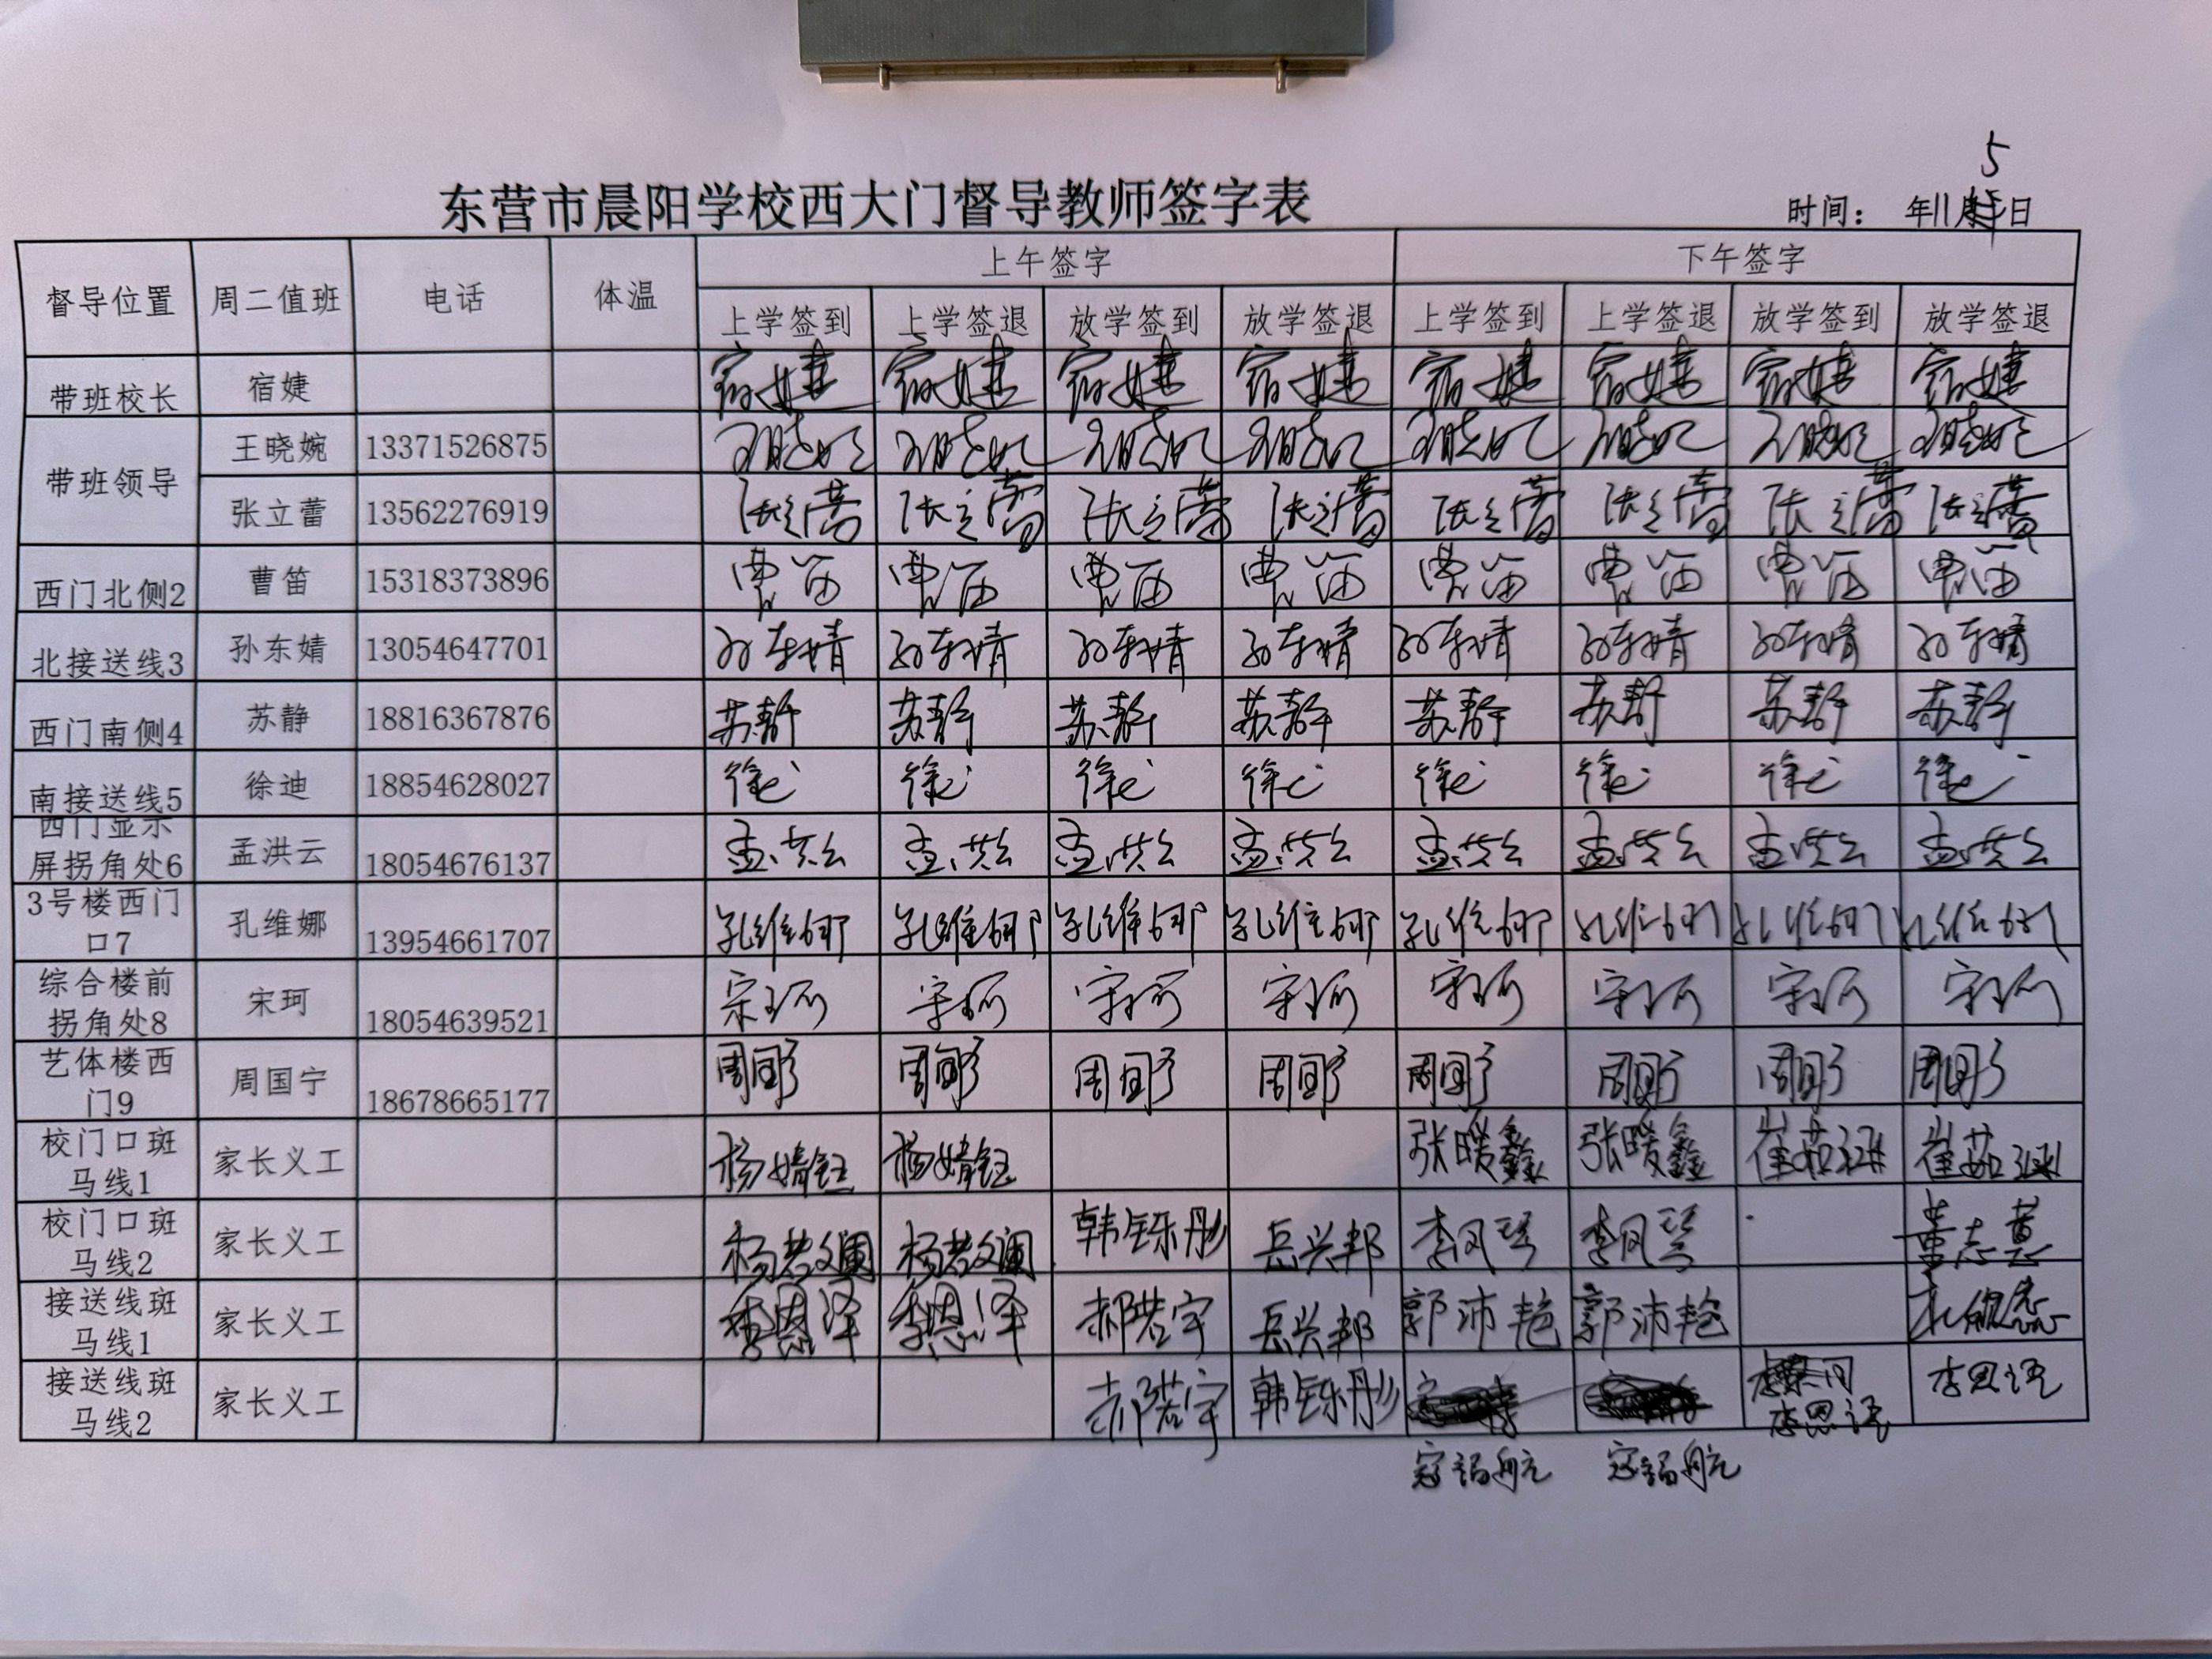 5
东营市晨阳学校西大门督导教师签字表 时间: 年11月 日
督导位置 周二值班 电话 体温 上午签字 下午签字
上学签到 上学签退 放学签到 放学签退 上学签到 上学签退 放学签到 放学签退
带班校长 宿婕 宿婕 宿婕 宿婕 宿婕 宿婕 宿婕 宿婕 宿婕
带班领导 王晓婉 13371526875 王晓婉 王晓婉 王晓婉 王晓婉 王晓婉 王晓婉 王晓婉 王晓婉
张立蕾 13562276919 张立蕾 张立蕾 张立蕾 张立蕾 张立蕾 张立蕾 张立蕾 张立蕾
西门北侧2 曹笛 15318373896 曹笛 曹笛 曹笛 曹笛 曹笛 曹笛 曹笛 曹笛
北接送线3 孙东婧 13054647701 孙东婧 孙东婧 孙东婧 孙东婧 孙东婧 孙东婧 孙东婧 孙东婧
西门南侧4 苏静 18816367876 苏静 苏静 苏静 苏静 苏静 苏静 苏静 苏静
南接送线5 徐迪 18854628027 徐迪 徐迪 徐迪 徐迪 徐迪 徐迪 徐迪 徐迪
西门显示
屏拐角处6 孟洪云 18054676137 孟洪云 孟洪云 孟洪云 孟洪云 孟洪云 孟洪云 孟洪云 孟洪云
3号楼西门
口7 孔维娜 13954661707 孔维娜 孔维娜 孔维娜 孔维娜 孔维娜 孔维娜 孔维娜 孔维娜
综合楼前
拐角处8 宋珂 18054639521 宋珂 宋珂 宋珂 宋珂 宋珂 宋珂 宋珂 宋珂
艺体楼西
门9 周国宁 18678665177 周国宁 周国宁 周国宁 周国宁 周国宁 周国宁 周国宁 周国宁
校门口斑
马线1 家长义工 杨婧钰 杨婧钰 张暖鑫 张暖鑫
校门口斑
马线2 家长义工 韩铄彤 岳兴邦 李风琴 李风琴 董志慧
接送线斑
马线1 家长义工 李恩泽 李恩泽 郝若宇 岳兴邦 郭沛艳 郭沛艳
接送线斑
马线2 家长义工 郝若宇 韩铄彤 李思语
李思语